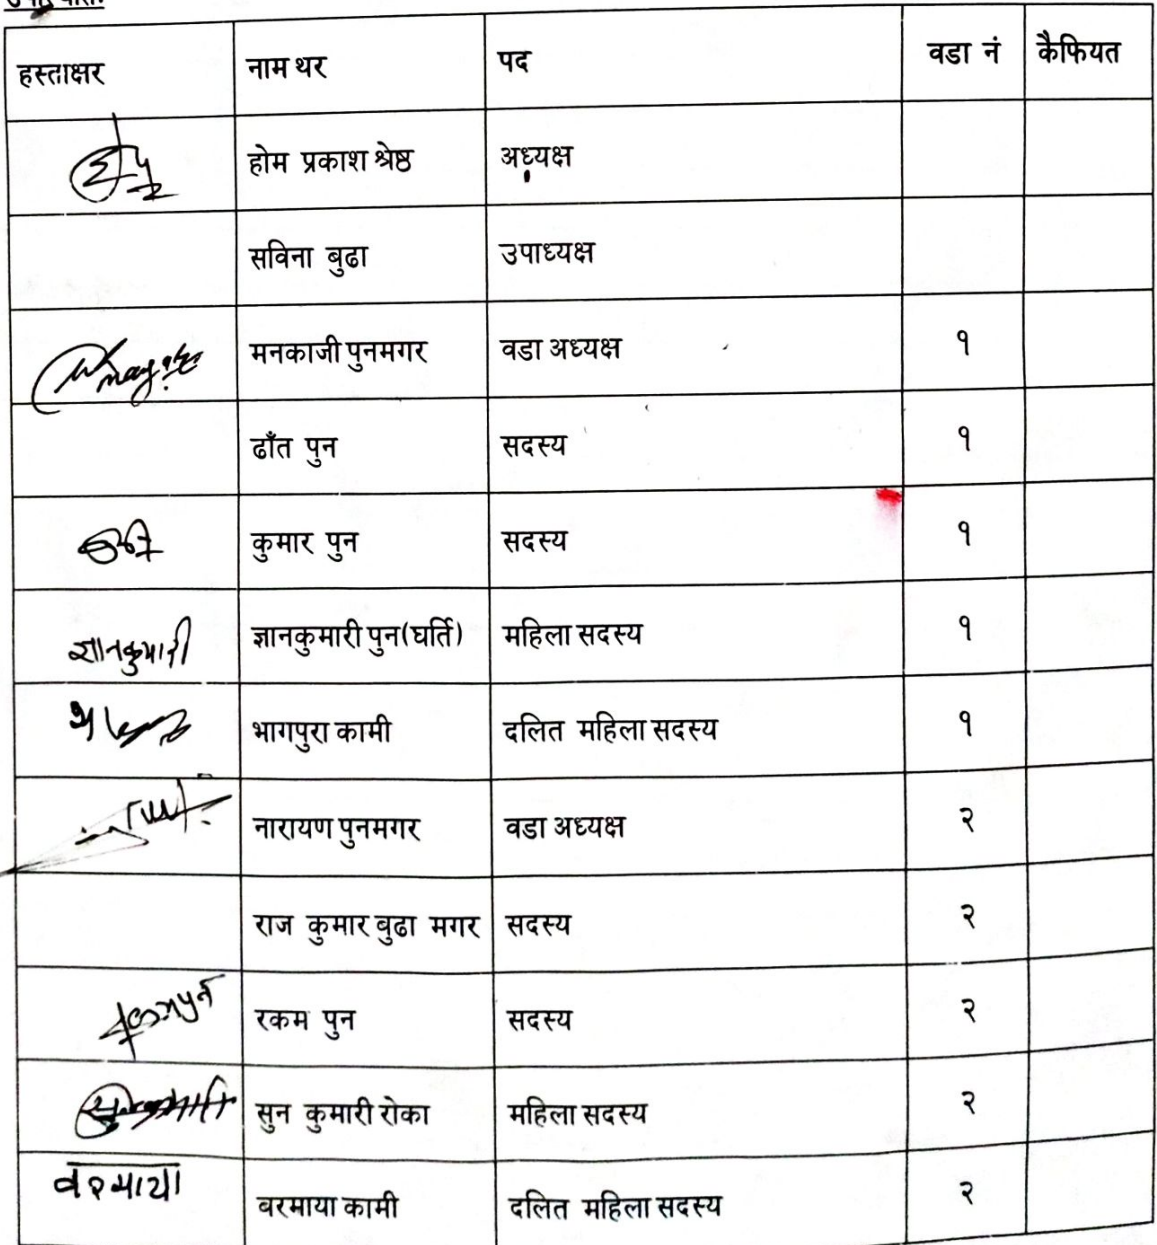 हस्ताक्षर नाम थर पद वडा नं कैफियत
होम प्रकाश श्रेष्ठ अध्यक्ष
सविना बुढा उपाध्यक्ष
मनकाजी पुनमगर वडा अध्यक्ष १
ढाँत पुन सदस्य १
कुमार पुन सदस्य १
ज्ञानकुमारी ज्ञानकुमारी पुन(घर्ति) महिला सदस्य १
भागपुरा कामी दलित महिला सदस्य १
नारायण पुनमगर वडा अध्यक्ष २
राज कुमार बुढा मगर सदस्य २
रकम पुन सदस्य २
सुन कुमारी रोका महिला सदस्य २
वरमाया बरमाया कामी दलित महिला सदस्य २